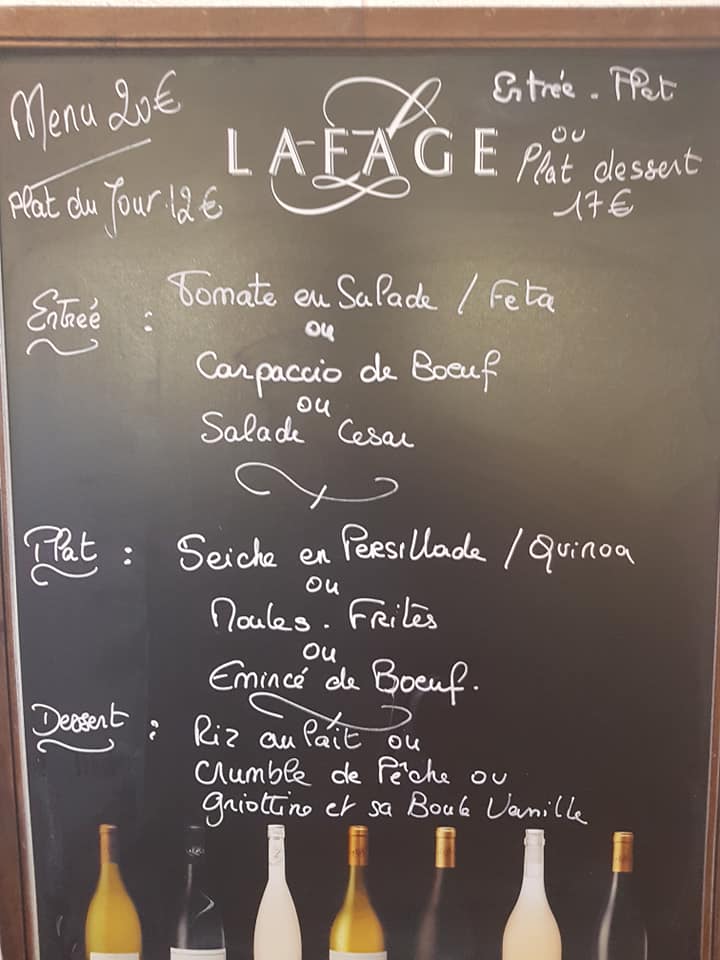 Menu 20€
Plat du Jour 12€
LAFAGE
Entrée - Plat
ou
Plat dessert
17€
Entreé : Tomate en Salade / Feta
ou
Carpaccio de Boeuf
ou
Salade Cesar
Plat : Seiche en Persillade / Quinoa
ou
Moules - Frites
ou
Emincé de Boeuf.
Dessert : Riz au lait ou
Crumble de Pêche ou
Griottino et sa Boule Vanille